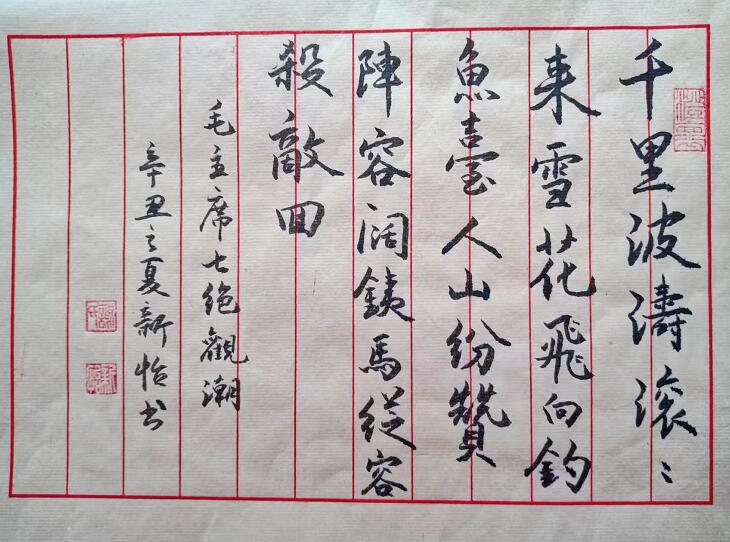 千里波濤滾〻
来雪花飛向釣
魚臺人山纷贊
陣容阔鉄馬従容
殺敵回
毛主席七绝觀潮
辛丑之夏新怡书